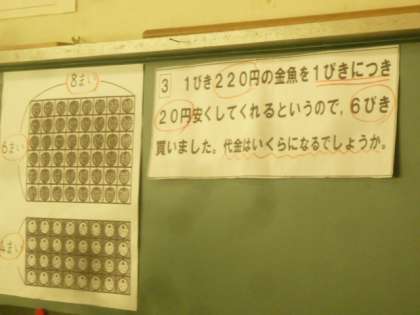 8まい
6まい
4まい
3 1ぴき220円の金魚を1ぴきにつき
20円安くしてくれるというので，6ぴき
買いました。代金はいくらになるでしょうか。